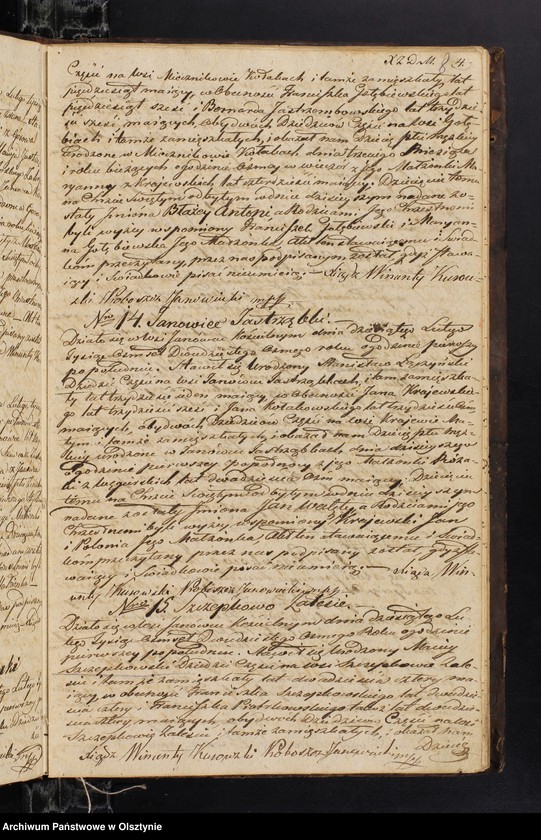 X 2 D. M. 8 4.
Część na Wsi Miecznikowie Kołakach i tamże zamięszkały, lat
pięćdziesiąt maiący, w Obecności Franciszka Gołębiewskiego lat
pięćdziesiąt sześć i Bernarda Jastrzembowskiego lat trzydzie-
ści sześć maiących, obydwóch Dziedziców Części na Wsi Gołę-
biach i tamże zamięszkałych, i okazał nam Dziecię płci męzkiey
Urodzone w Miecznikowie Kołakach dnia trzeciego Miesiąca
i roku bieżących o godzinie Osmey w wieczór z Jego Małżonki Ma-
ryanny z Krajewskich lat czterdzieści maiącey. Dziecięciu temu
na Chrzcie Swiętym odbytym w dniu dzisieyszym nadane zo-
stały Imiona Błażey Antoni a Rodzicami Jego Chrzestnemi
byli wyżey wspomniony Franciszek Gołębiewski i Maryan-
na Gołębiewska Jego Małżonka, Akt ten stawaiącemu i Swiad-
kom przeczytany, przez nas podpisanym został, gdyż stawa-
iący i Swiadkowie pisać nieumieią. — Xiądz Winanty Kurow-
ski Proboszcz Janowiecki mpp
Nro 14. Janowiec Jastrząbki.
Działo się w Wsi Janowcu Kościelnym dnia dziesiątego Lutego
Tysiąc Ośmset Dwudziestego Osmego roku o godzinie pierwszy
po południu. Stawił się Urodzony Stanisław
Dziedzic Części na Wsi Janowcu Jastrząbkach, i tam zamięszka-
ły lat trzydzieści ieden maiący, w Obecności Jana Krajewskie-
go lat trzydzieści sześć i Jana Kołakowskiego lat trzydzieści
maiących, obydwóch Dziedziców Części na Wsi Krajewie Ma-
łym i tamże zamięszkałych, i okazał nam Dziecię płci męzkiey
Urodzone w Janowcu Jastrząbkach dnia dzisieyszego
o godzinie pierwszey po północy z Jego Małżonki Roza-
lii z lat dwadzieścia Osm maiącey. Dziecięciu
temu na Chrzcie Swiętym odbytym w dniu dzisieyszym
nadane zostały Imiona Jan Walęty, a Rodzicami Jego
Chrzestnemi byli wyżey wspomniony Krajewski Jan
i Polonia Jego Małżonka, Akt ten stawaiącemu i Swiad-
kom przeczytany przez nas podpisany został, gdyż Sta-
waiący i Swiadkowie pisać nieumieią. — Xiądz Win-
anty Kurowski Proboszcz Janowiecki mpp
Nro 15. Szczepkowo Zalesie.
Działo się w Wsi Janowcu Kościelnym dnia dziesiątego Lu-
tego Tysiąc Ośmset Dwudziestego Osmego Roku o godzinie
pierwszey po południu. Stawił się Urodzony Maciey
Szczepkowski Dziedzic Części na Wsi Szczepkowie Zale-
siu i tamże zamięszkały lat dwadzieścia cztery ma-
iący, w obecności Franciszka Szczepkowskiego lat dwadzie-
ścia cztery i Franciszka także lat dwadzie-
ścia cztery maiących, obydwóch Dziedziców Części na Wsi
Szczepkowie Zalesiu i tamże zamięszkałych, i okazał nam
Dziecię
Xiądz Winanty Kurowski Proboszcz Janowiecki mpp
Archiwum Państwowe w Olsztynie